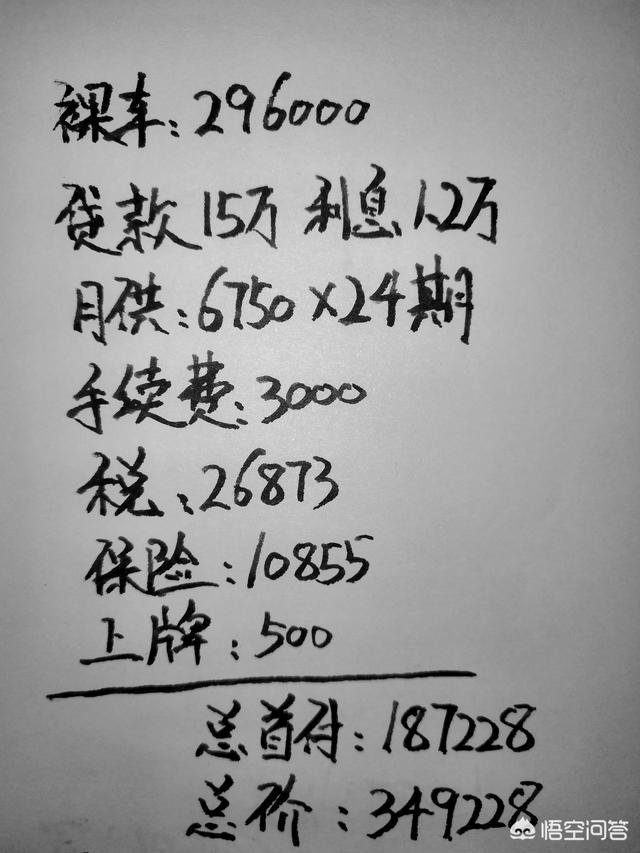 裸车:296000
贷款15万 利息1.2万
月供:6750×24期
手续费:3000
税:26873
保险:10855
上牌:500
总首付:187228
总价:349228
悟空问答